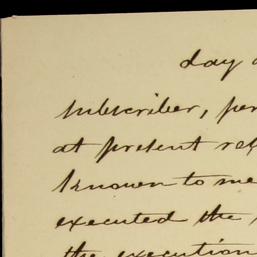 day
subscriber, per
at present
known to me
executed the
the execution